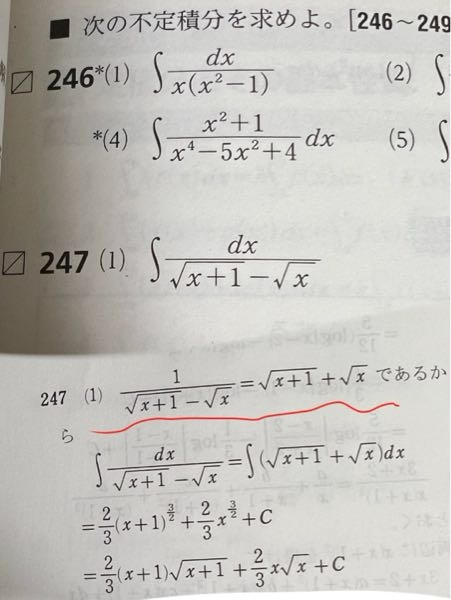 ■ 次の不定積分を求めよ。[246～249
246*(1) ∫ dx / x(x²−1) (2) ∫
*(4) ∫ (x²+1) / (x⁴−5x²+4) dx (5) ∫
247 (1) ∫ dx / (√(x+1)−√x)
247 (1) 1 / (√(x+1)−√x) = √(x+1)+√x であるか
ら
∫ dx / (√(x+1)−√x) = ∫(√(x+1)+√x)dx
= 2/3 (x+1)^(3/2) + 2/3 x^(3/2) + C
= 2/3 (x+1)√(x+1) + 2/3 x√x + C